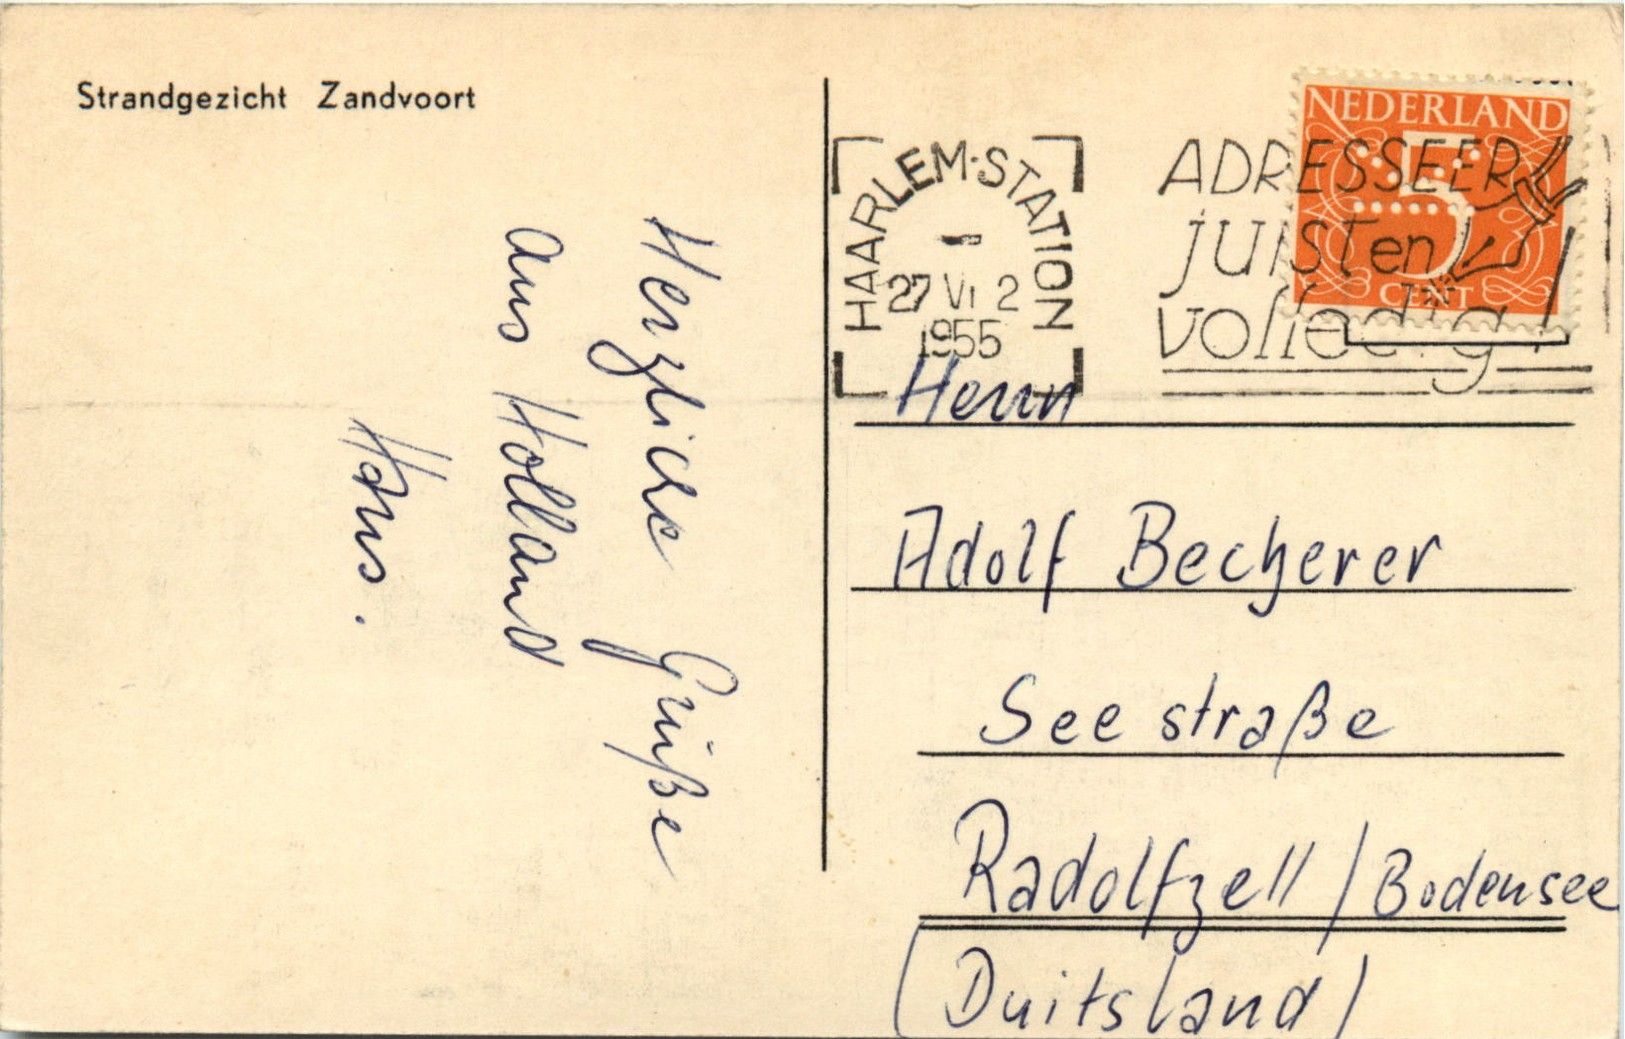 Strandgezicht Zandvoort
Herzliche Grüße
aus Holland
Hans.
HAARLEM-STATION
27 VI 2
1955
ADRESSEER
juisten
volledig!
NEDERLAND
5
CENT
Herrn
Adolf Becherer
Seestraße
Radolfzell / Bodensee
(Duitsland)